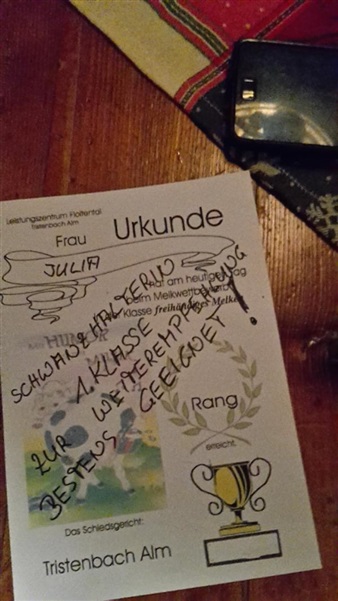 Leistungszentrum Floitental
Tristenbach Alm
Urkunde
Frau
JULIA
hat am heutigen Tag
beim Melkwettbewerb
Klasse freihändiges Melken
SCHWANZHALTERIN
1. KLASSE
ZUR WEITEREMPFEHLUNG
BESTENS GEEIGNET!
HUMOR
Rang
erreicht.
Das Schiedsgericht:
Tristenbach Alm